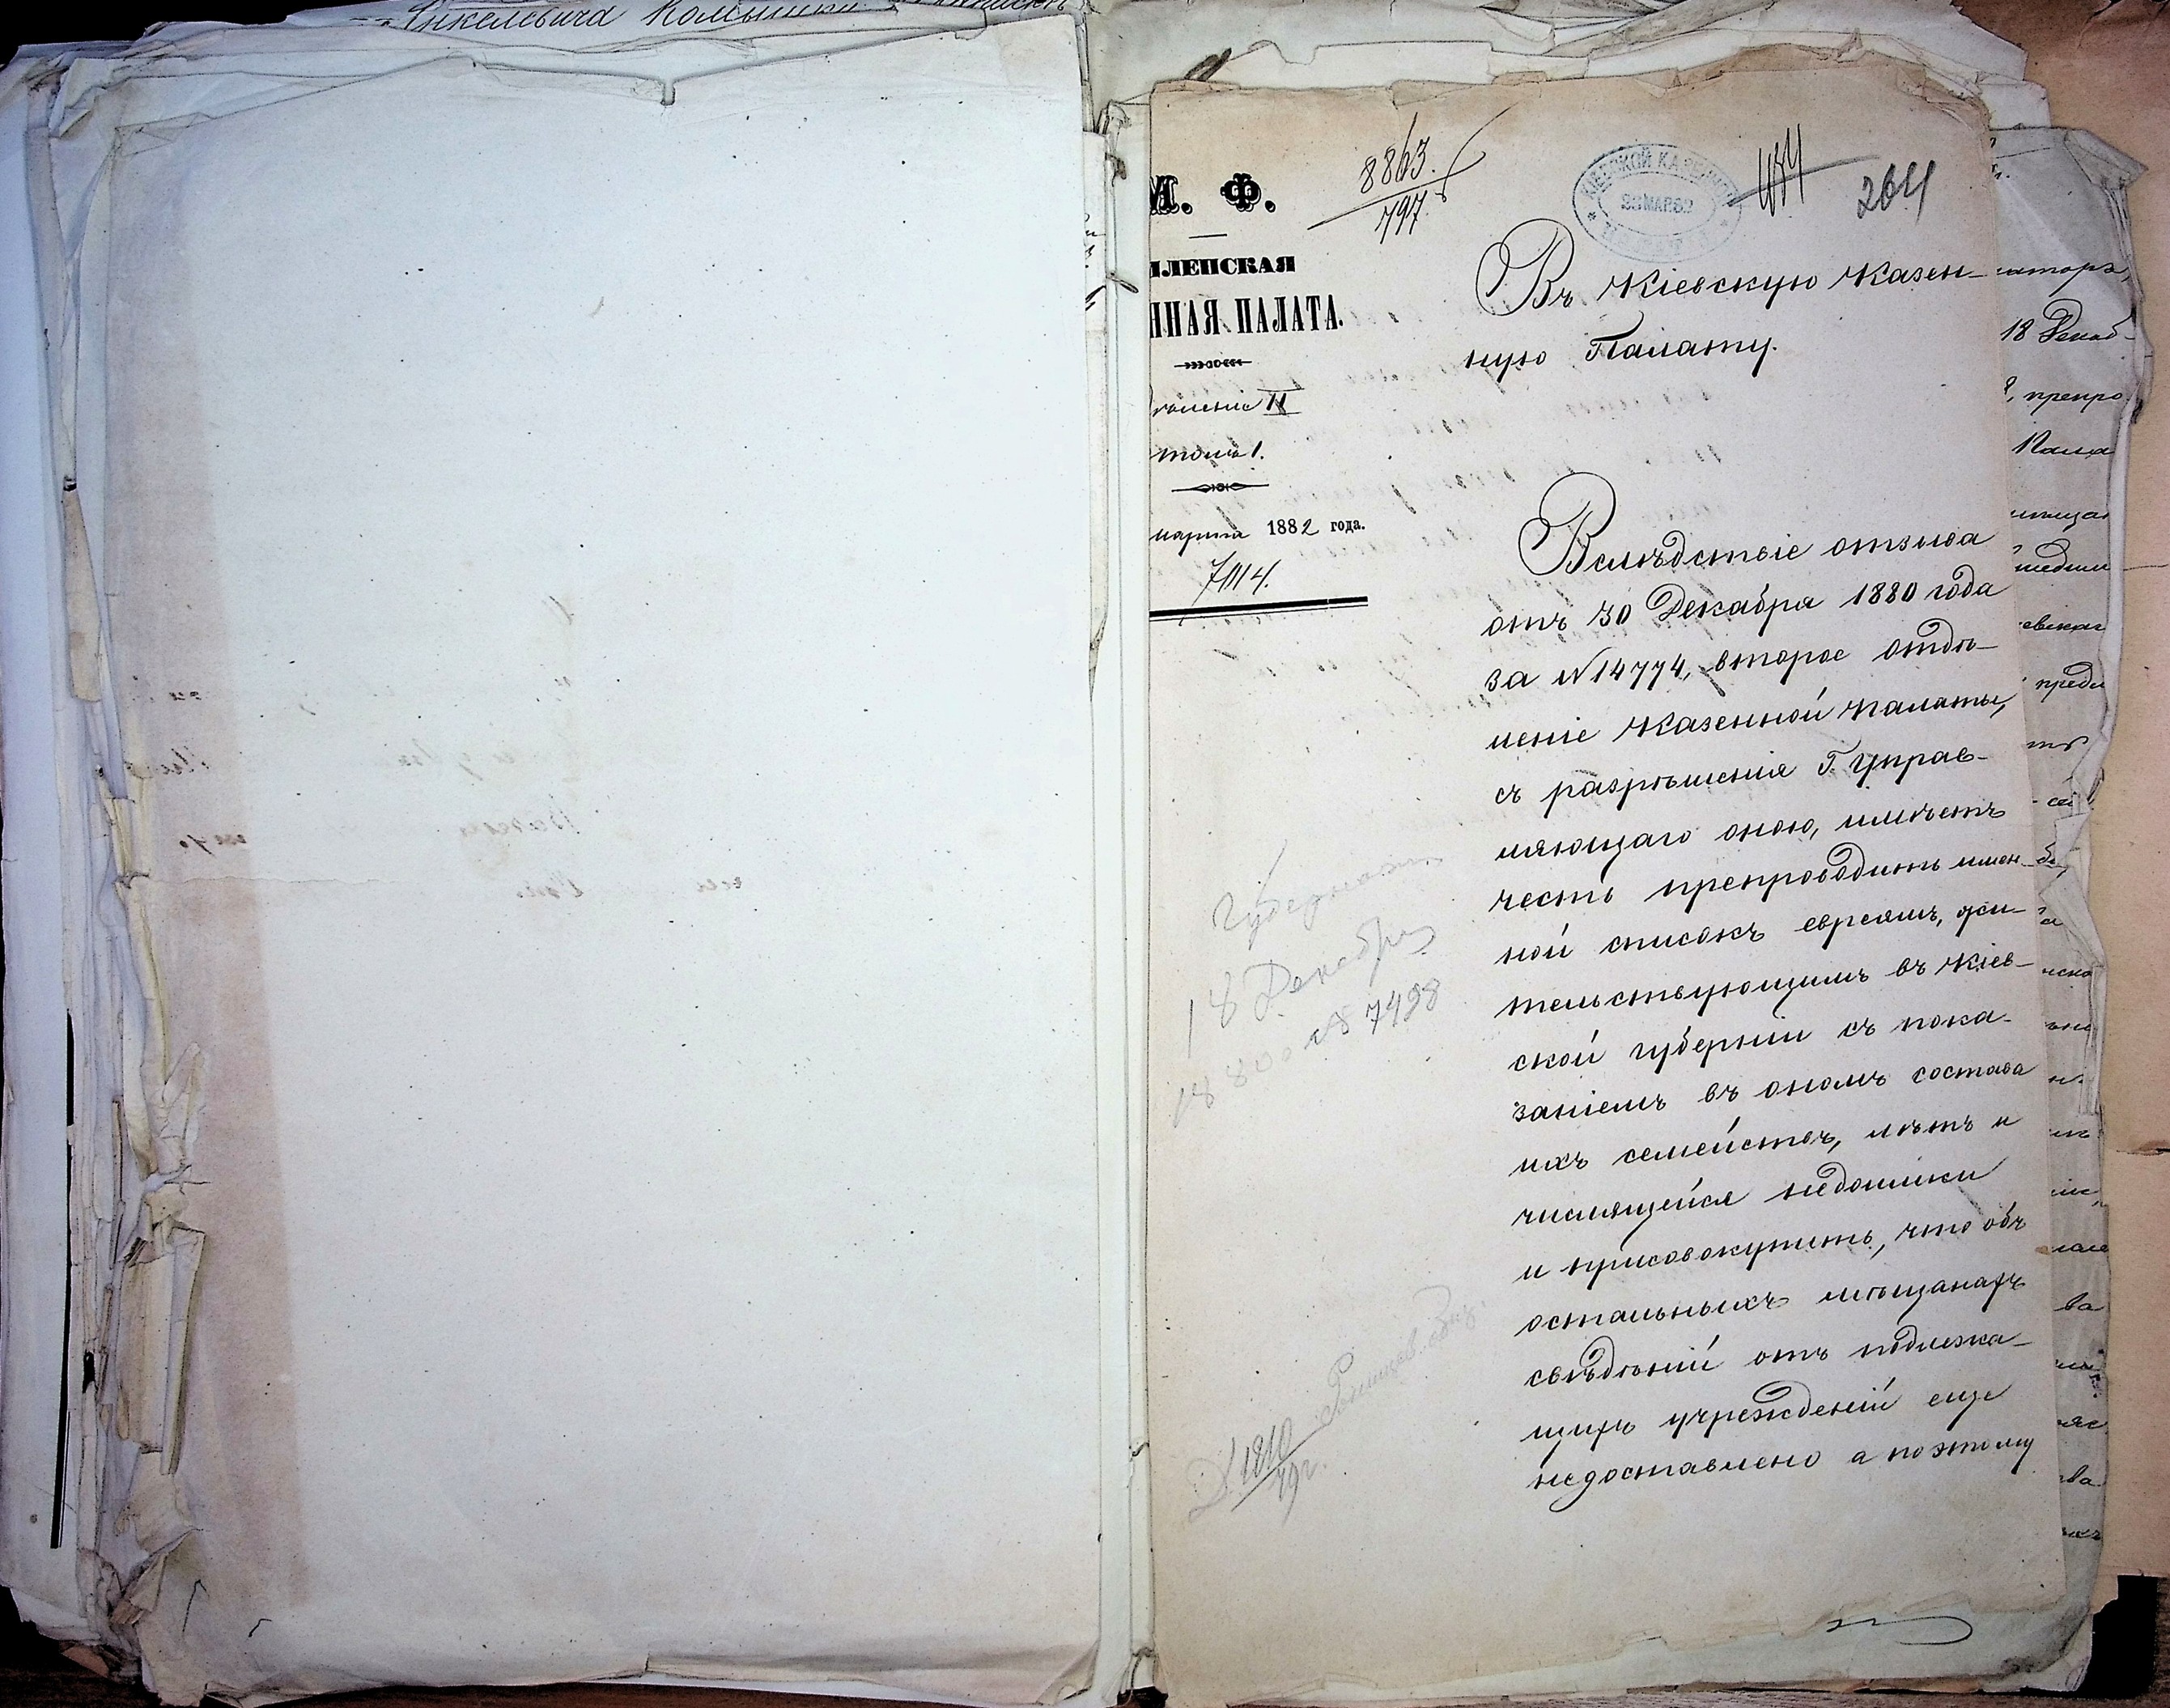 М. Ф.
ИЛЕНСКАЯ
ННАЯ ПАЛАТА.
II
1.
марта 1882 года.
7114.
8863.
797.
КІЕВСКОЙ КАЗЕННОЙ
23 MAR 82
264
Въ Кіевскую Казен-
ную Палату.
Вслѣдствіе отзыва
отъ 30 Декабря 1880 года
за №14774, второе отдѣ-
леніе Казенной Палаты,
съ разрѣшенія Г. Управ-
ляющаго оною, имѣетъ
честь препроводить имен-
ной списокъ евреямъ, жи-
тельствующимъ въ Кіев-
ской губерніи съ пока-
заніемъ въ ономъ состава
ихъ семействъ, лѣтъ и
числящейся недоимки
и присовокупить, что объ
остальныхъ мѣщанахъ
свѣдѣній отъ подлежа-
щихъ учрежденій еще
недоставлено а поэтому
18 Декабря
1880 № 7498
1810
79 г.
18 Декаб-
препро
Пала